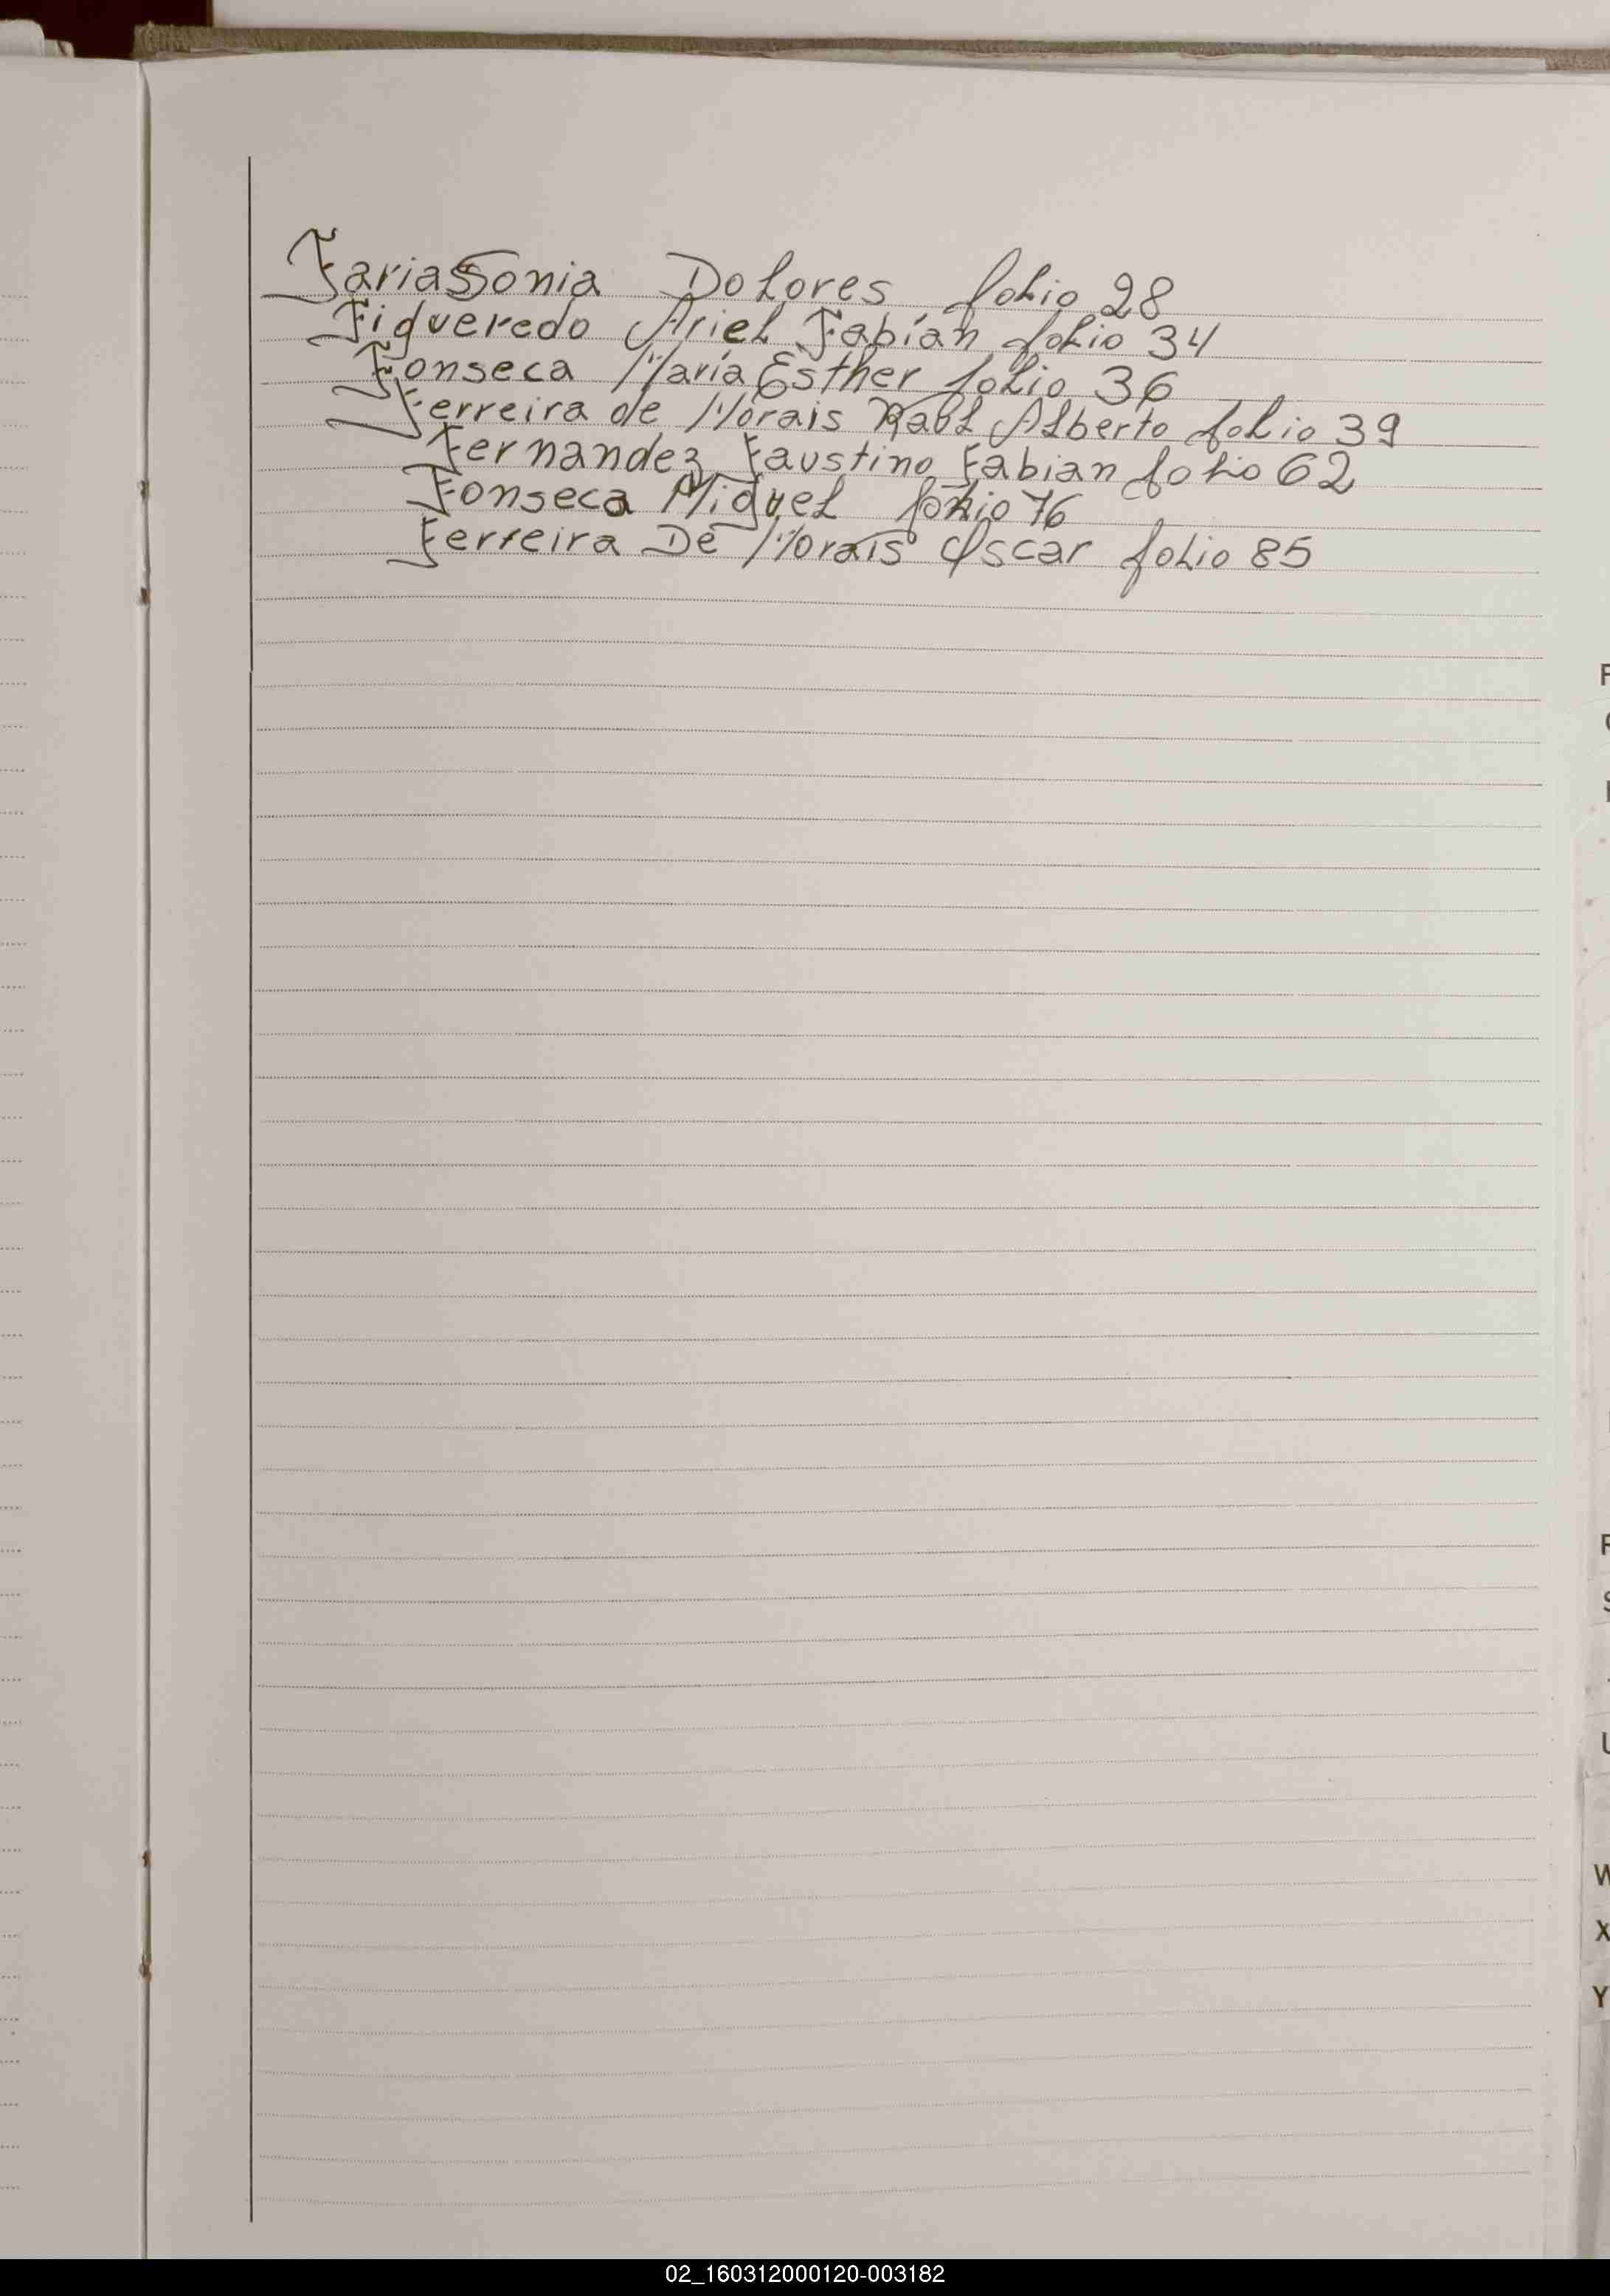 Farias Sonia Dolores folio 28
Figueredo Ariel Fabián folio 34
Fonseca María Esther folio 36
Ferreira de Morais Raúl Alberto folio 39
Fernandez Faustino Fabian folio 62
Fonseca Miguel folio 76
Ferreira De Morais Oscar folio 85
F
R
S
U
W
X
Y
02_160312000120-003182